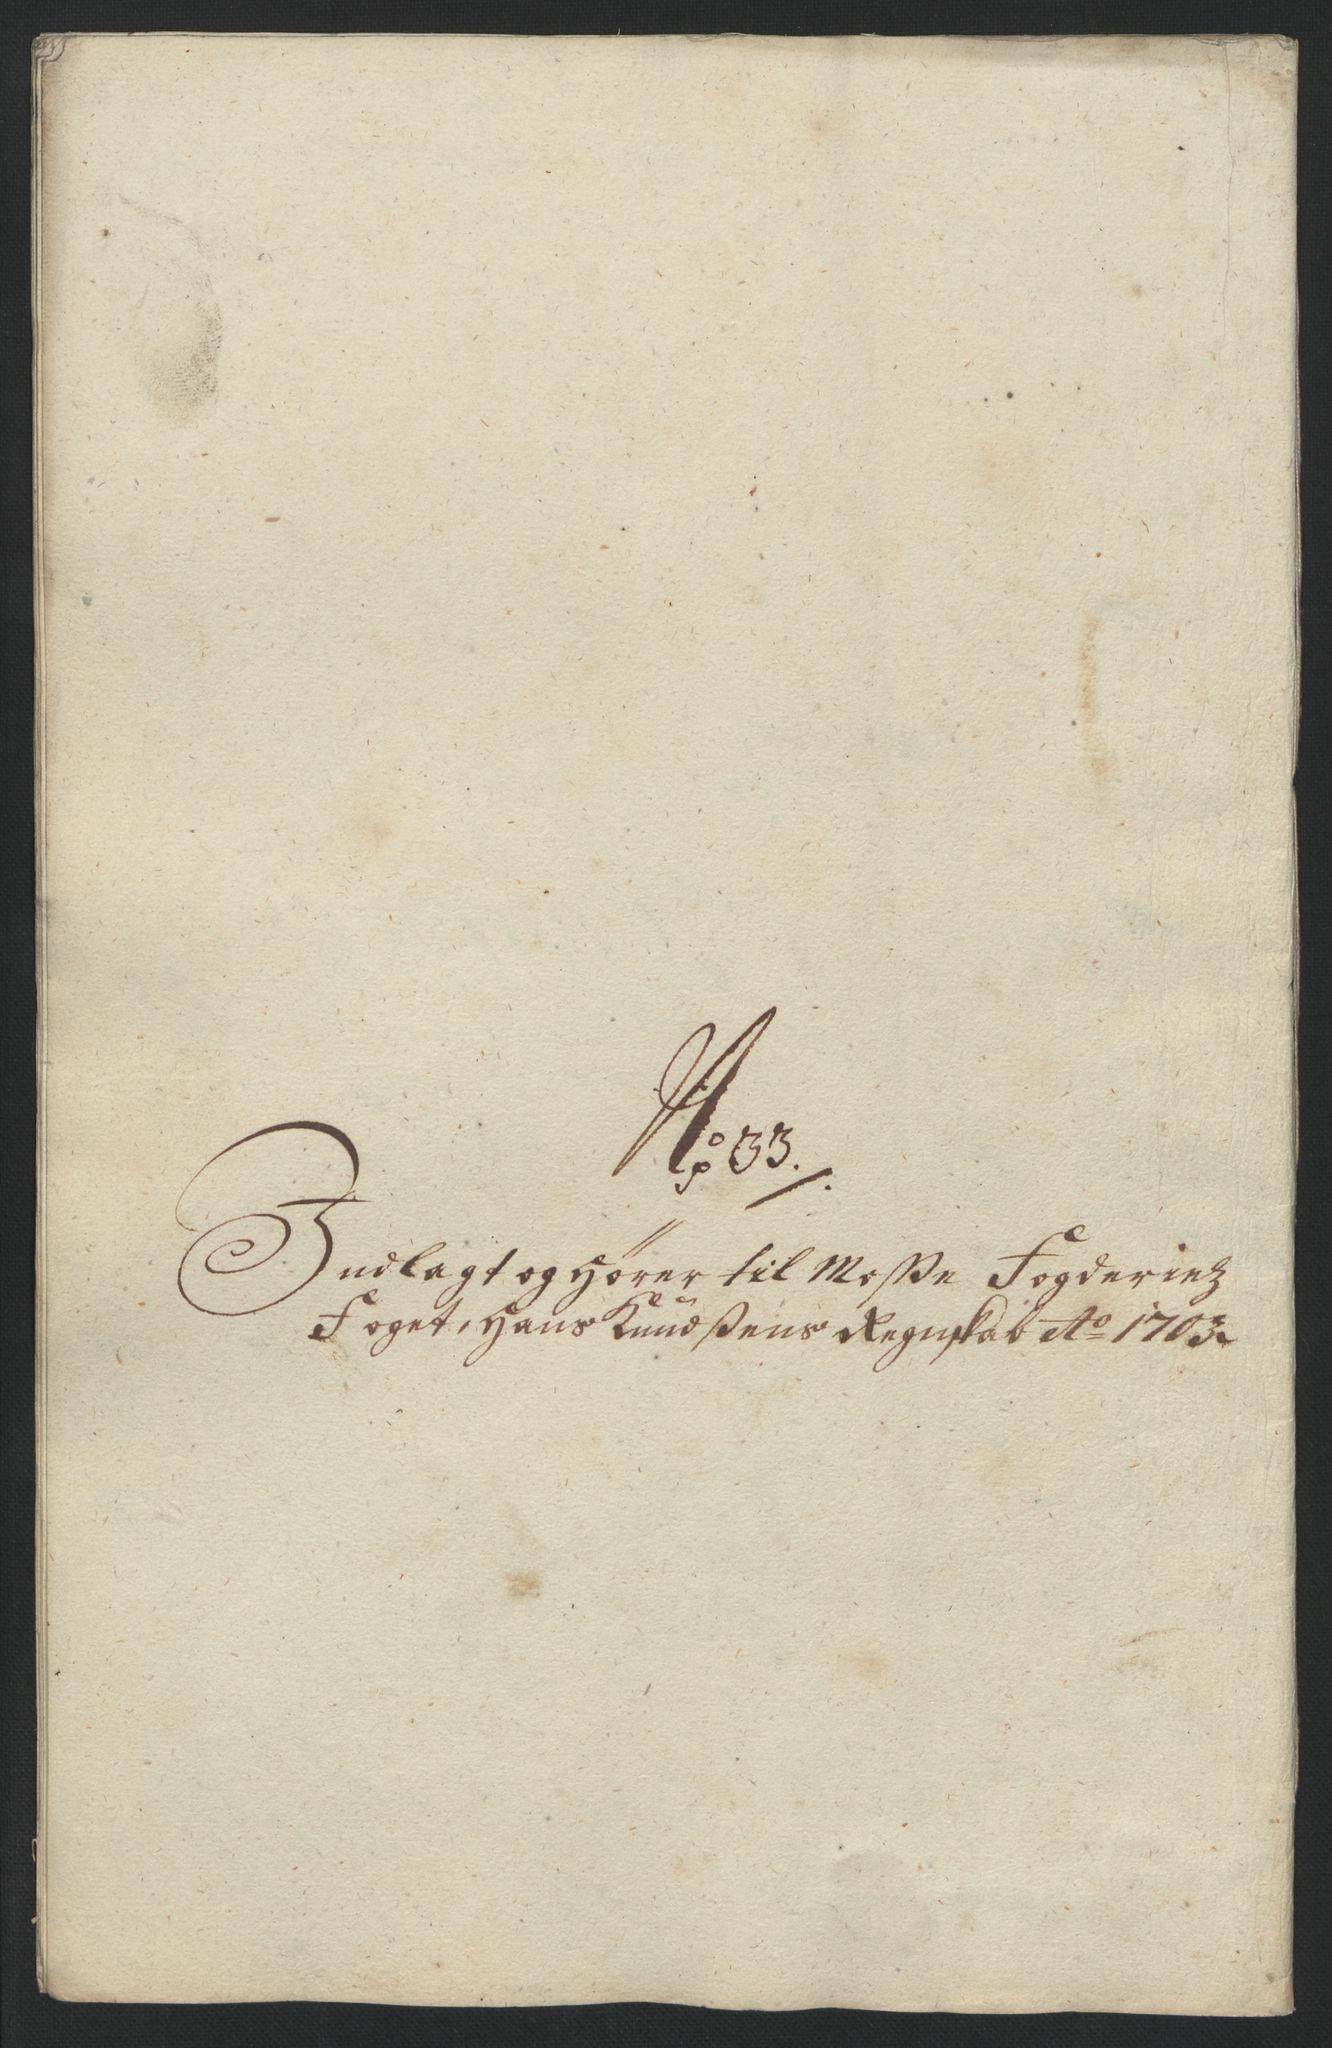 No 33.
Indlagt og hörer til Mosse Fogderietz
Foget, Hans Knudsßens Regnskab Ao 1703